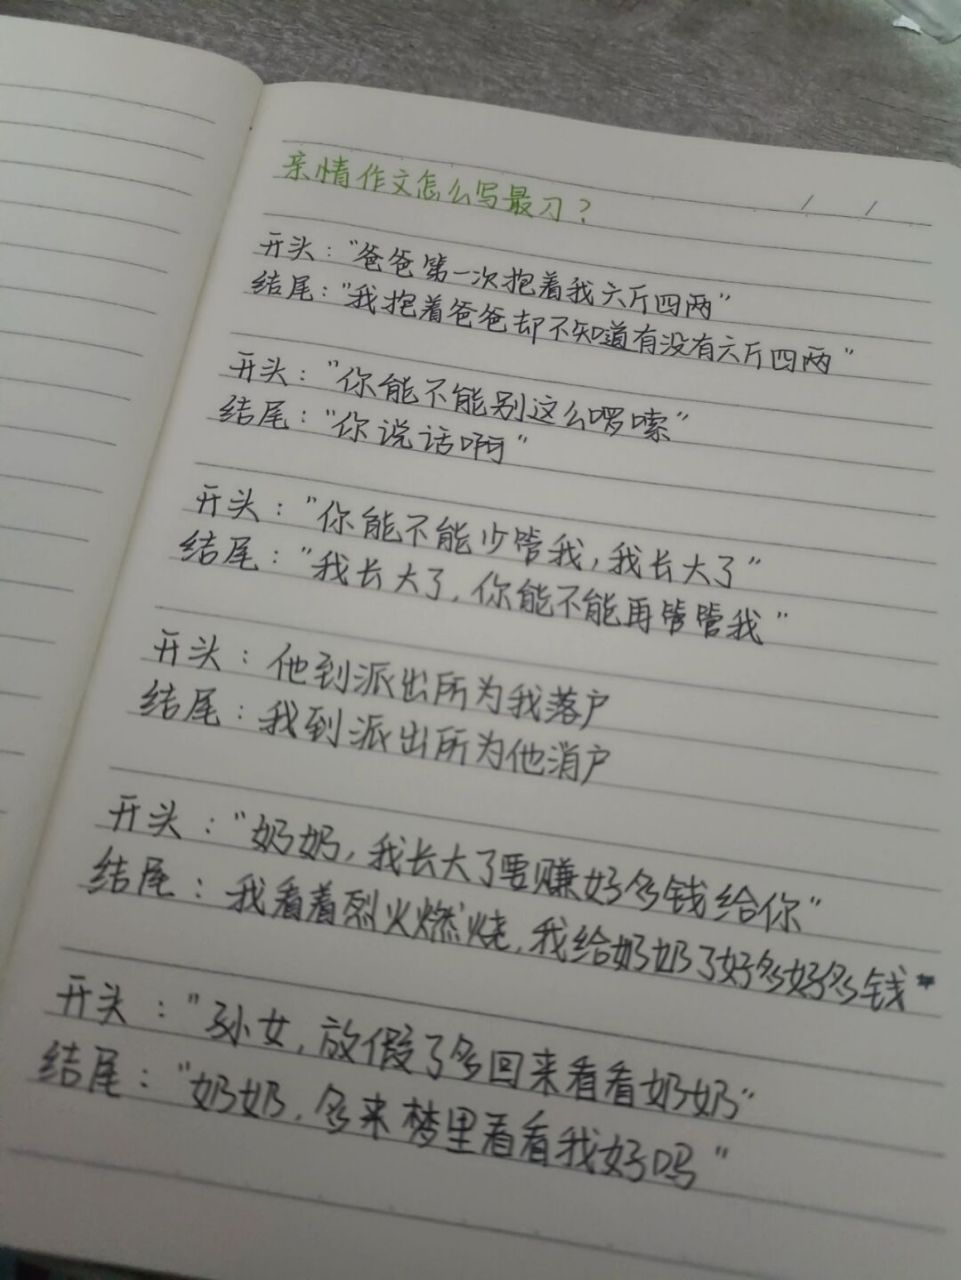 亲情作文怎么写最刀?
开头："爸爸第一次抱着我六斤四两"
结尾："我抱着爸爸却不知道有没有六斤四两"
开头："你能不能别这么啰嗦"
结尾："你说话啊"
开头："你能不能少管我,我长大了"
结尾："我长大了,你能不能再管管我"
开头：他到派出所为我落户
结尾：我到派出所为他消户
开头："奶奶,我长大了要赚好多钱给你"
结尾：我看着烈火燃烧,我给奶奶了好多好多钱"
开头："孙女,放假了多回来看看奶奶"
结尾："奶奶,多来梦里看看我好吗"